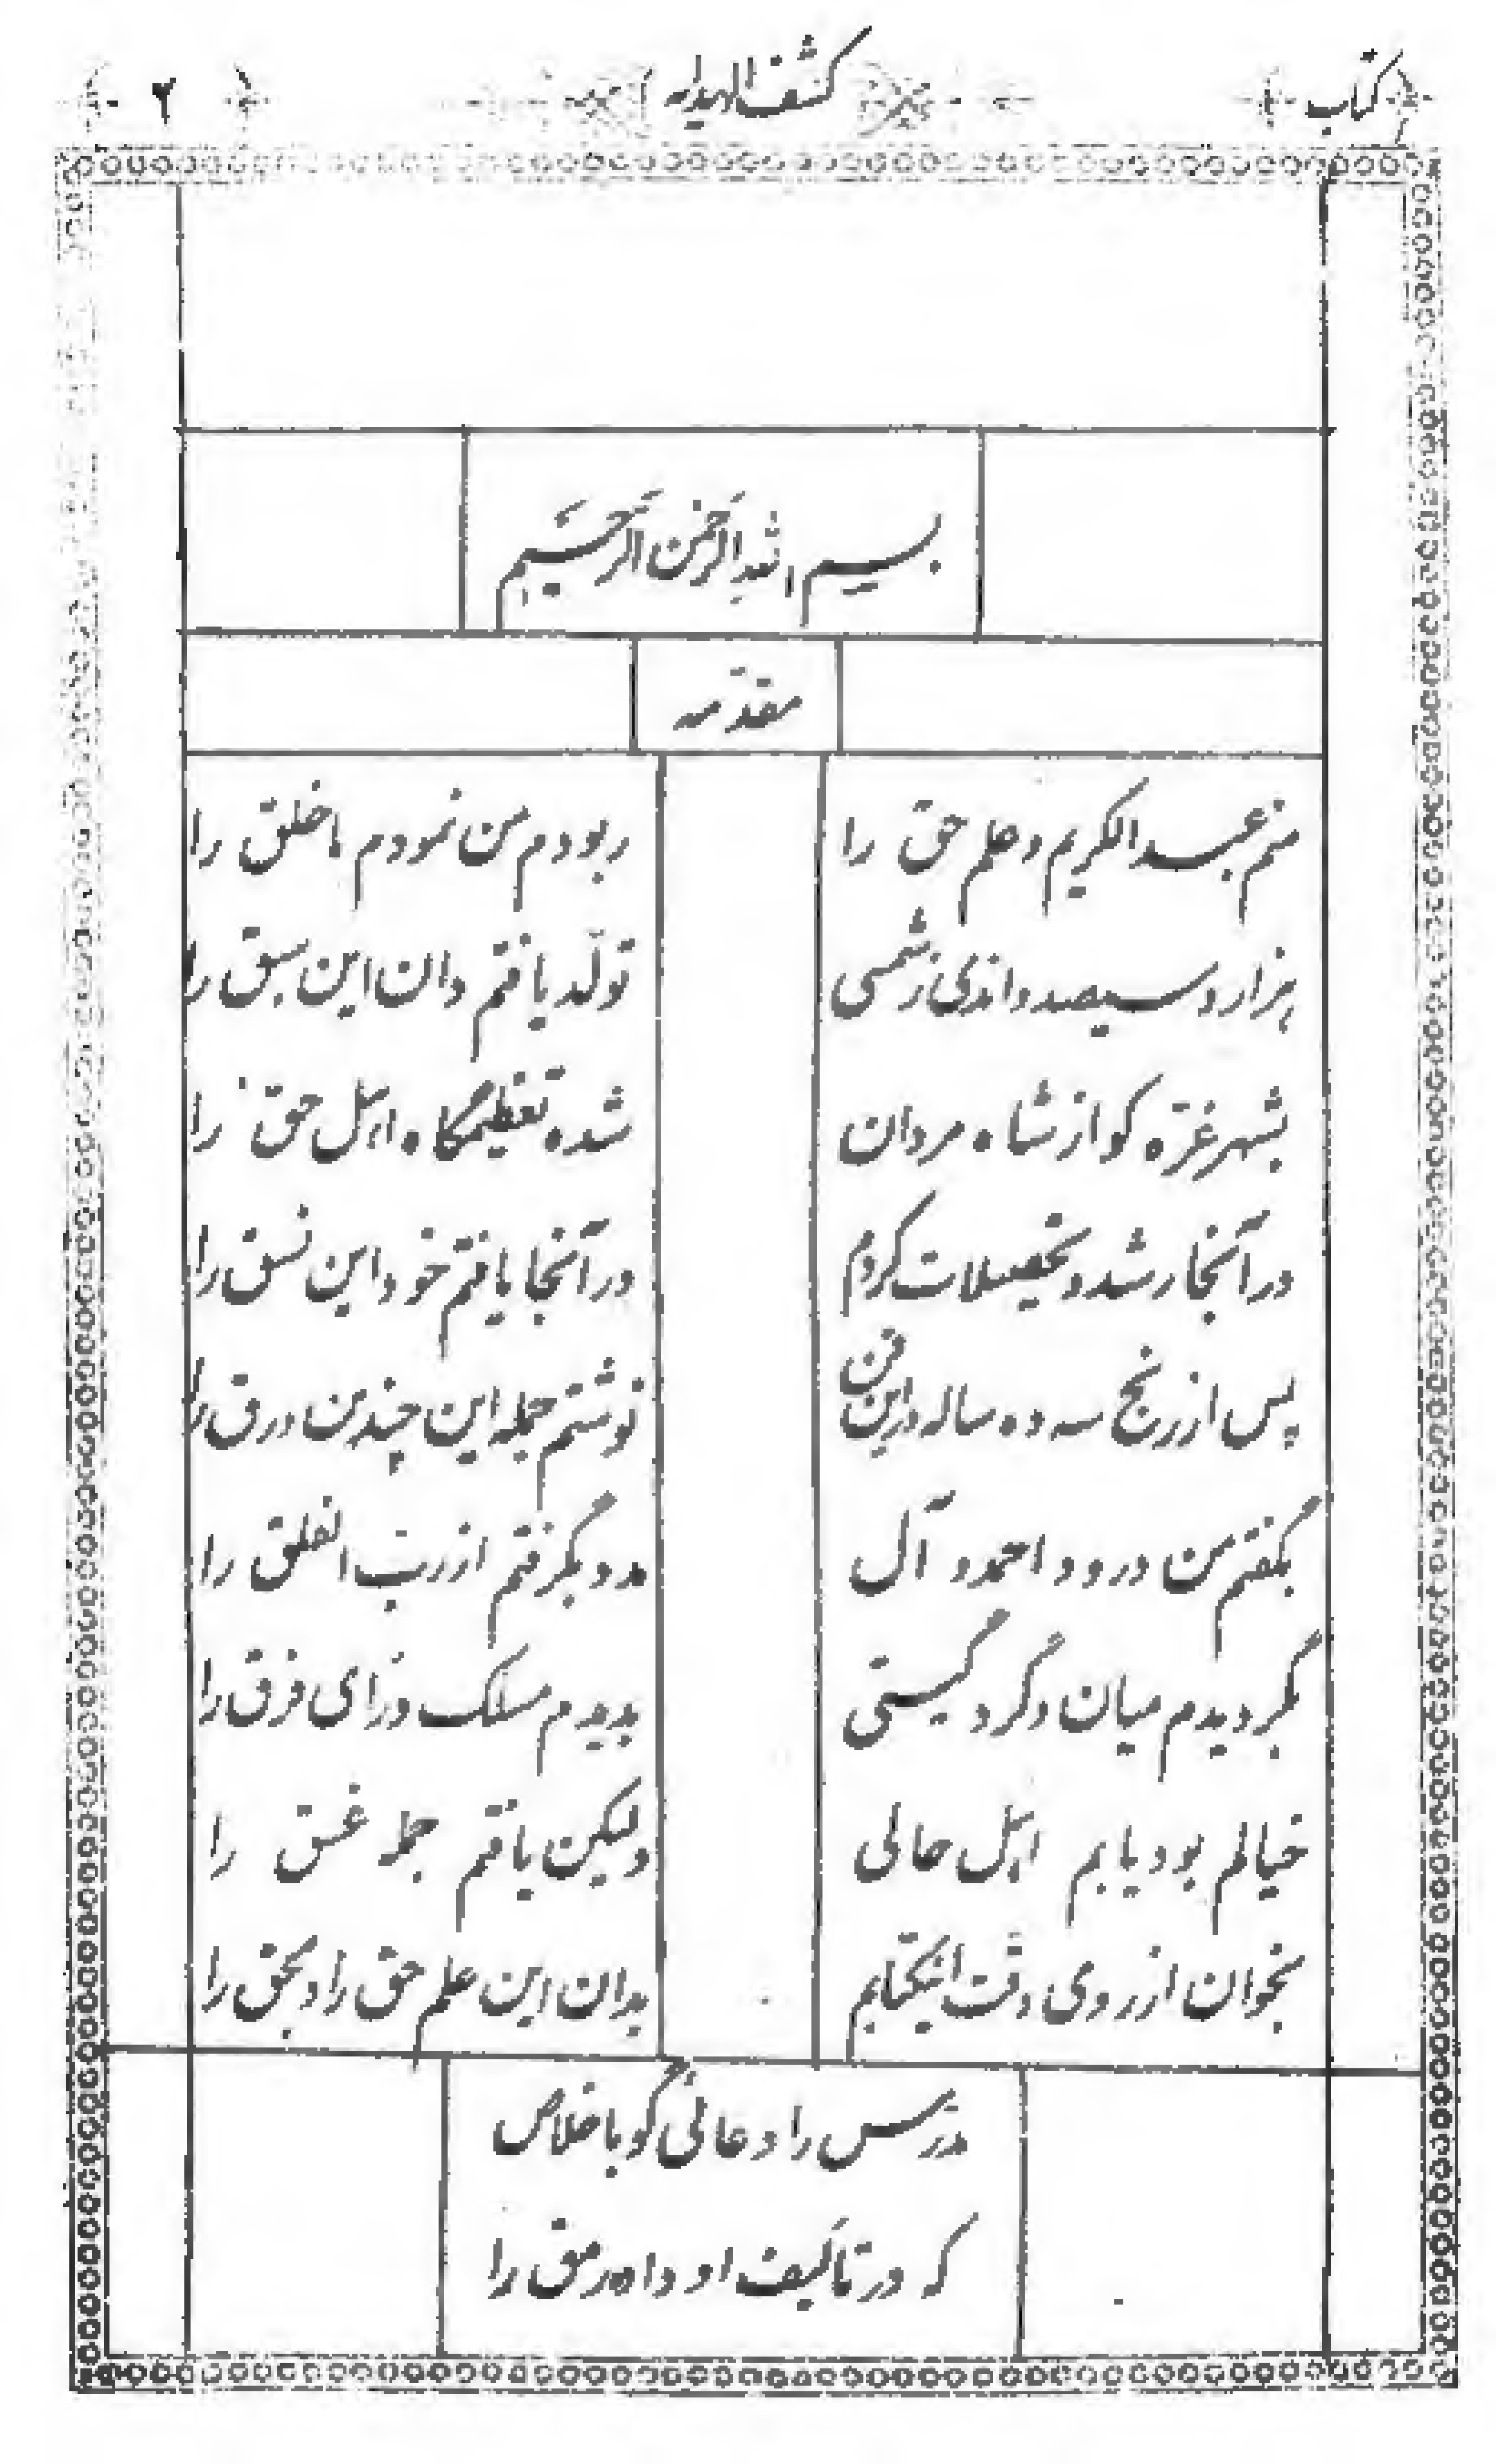 کتاب کشف الهدایه ۲
بسم الله الرَّحمن الرَّحیم
مقدّمه
منم عبدالکریم و علم حق را ربودم من نمودم ما خلق را
هزار و سیصد و اندی ز شمسی تولّد یافتم دان این سبق را
بشهر غزّه کو از شاه مردان شده تعظیمگاه اهل حق را
در آنجا رشد و تحصیلات کردم در آنجا یافتم خود این نسق را
پس از رنج سه ده ساله در این فن نوشتم جمله این چندین ورق را
بگفتم من درود احمد و آل مدد بگرفتم از ربّ الفلق را
بگردیدم میان و گرد گیتی بدیدم مسلک و رأی فرق را
خیالم بود یابم اهل حالی ولیکن یافتم جمله غسق را
بخوان از روی دقّت اینکتابم بدان این علم حق را و بحق را
مدرّس را دعائی گو باخلاص
که در تألیف او داده رمق را